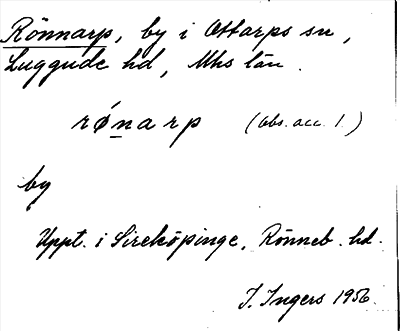 Rönnarp, by i Ottarps sn,
Luggude hd, Mhs län.
rǿnarp (obs. acc. 1.)
by
Uppt. i Sireköpinge, Rönneb. hd.
I. Ingers 1956.